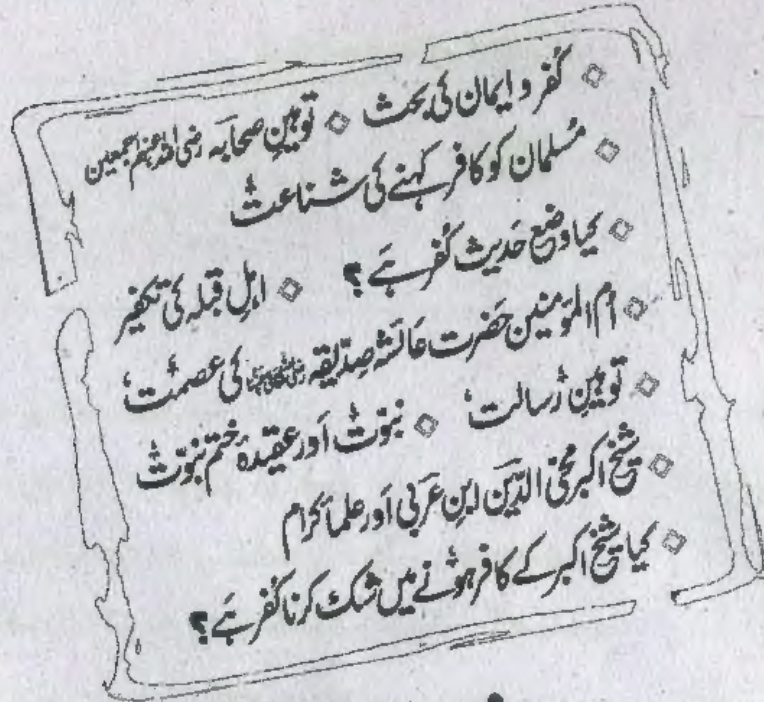 ◇ کفر و ایمان کی بحث ◇ توہینِ صحابہ رضی اللہ عنہم اجمعین
◇ مُسلمان کو کافر کہنے کی شناعت
◇ کیا وضعِ حَدیث کُفر ہَے ؟ ◇ اہلِ قبلہ کی تکفیر
◇ ام المؤمنین حَضرت عَائشہ صِدّیقہ کی عصمت
◇ توہینِ رسالت ◇ نبوّت اَور عقیدۂ ختم نبوّت
◇ شیخ اکبر محی الدّین ابنِ عَربی اَور علما کرام
◇ کیا شیخ اکبر کے کافر ہونے میں شک کرنا کُفر ہَے ؟